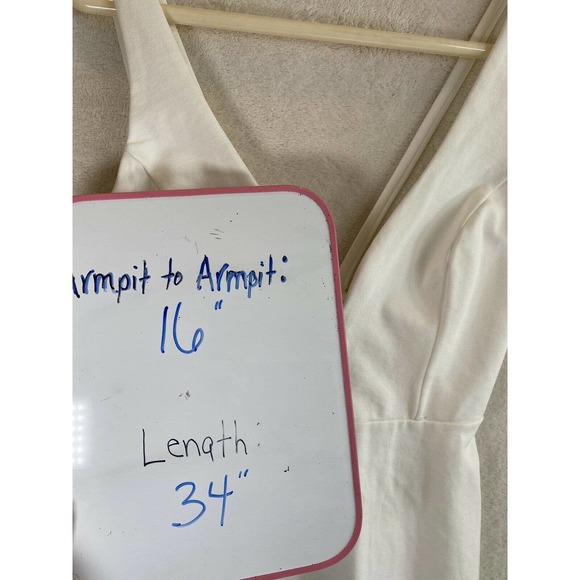 Armpit to Armpit:
16"
Length:
34"